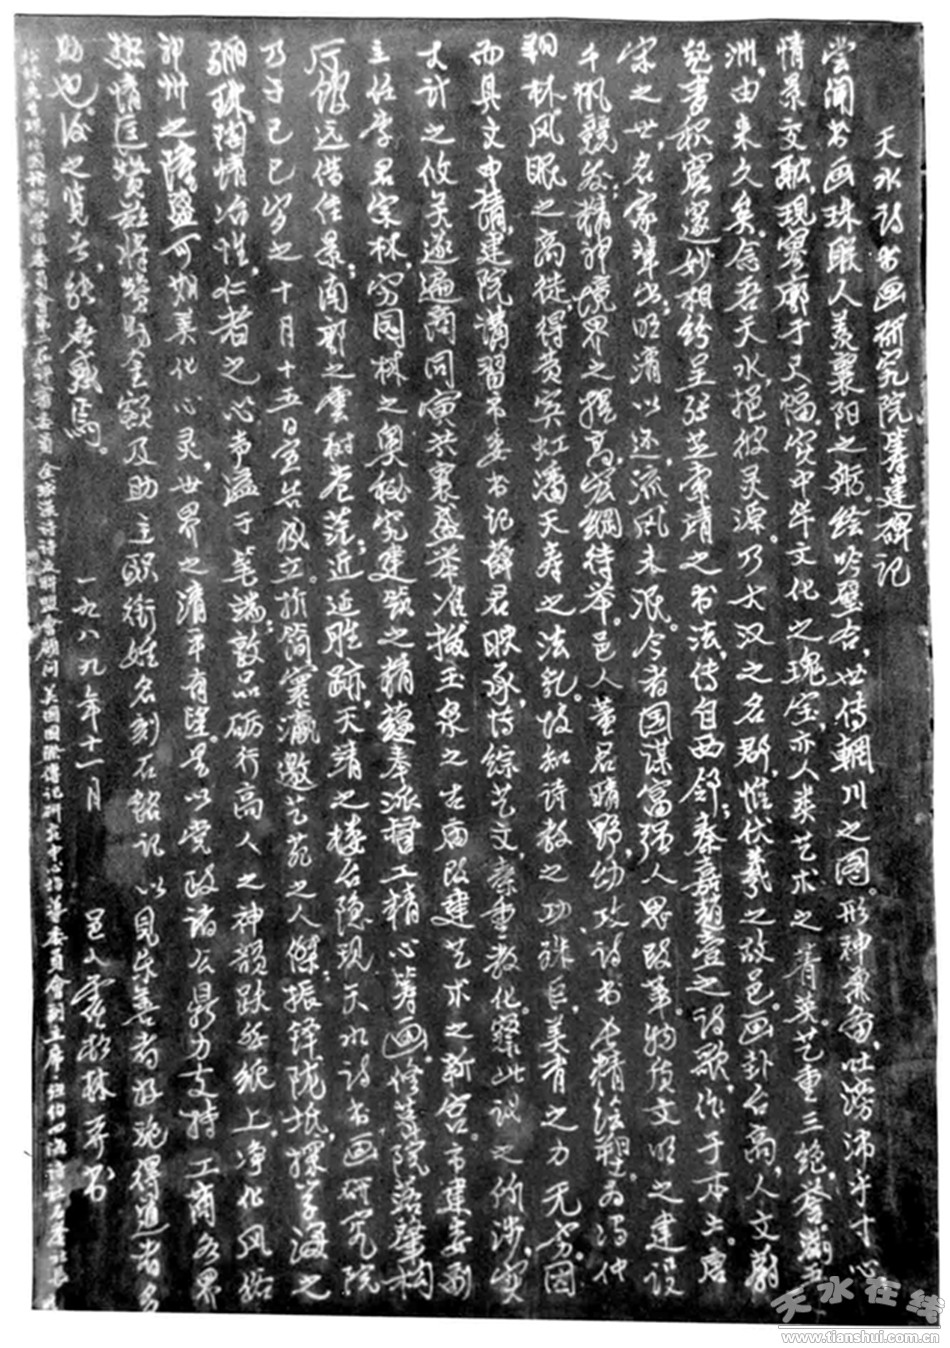 天水诗书画研究院筹建碑记
尝闻书画珠联人羡襄阳之舫绘吟璧合世传辋川之图。形神兼备,吐滂沛乎寸心
情景交融,现寥廓于尺幅。实中华文化之瑰宝,亦人类艺术之菁英。艺重三绝,誉满五
洲,由来久矣。念吾天水,挹彼灵源。乃大汉之名郡,惟伏羲之故邑。画卦台高,人文蔚
起,书积窟邃,妙相纷呈。张芝索靖之书法,传自西邻;秦嘉赵壹之诗歌,作于本土。唐
宋之世,名家辈出;明清以还,流风未泯。今者国谋富强,人思改革,物质文明之建设
千帆竞发,精神境界之提高,宏纲待举。邑人董君晴野,幼攻诗书,长精绘塑。为冯仲
翔林风眠之高徒,得黄宾虹潘天寿之法乳。故知诗教之功殊巨,美育之力无穷。因
而具文申请,建院讲习。市委书记薛君映承,恃综艺文,素重教化。察此议之所涉,实
大计之攸关。遂遍商同寅,共襄盛举。准撤玉泉之古庙,改建艺术之新合。市建委副
主任李君宗林,穷园林之奥秘,究建筑之精蕴。奉派督工,精心筹画。修葺院落,肇构
厅馆。远借佳景,南郭之云树苍茫;近延胜迹,天靖之楼台隐现。天水诗书画研究院
乃于己巳岁之十月十五日宣告成立。折简寰瀛,邀艺苑之人杰;振铎陇坻,探学海之
骊珠。陶情冶性,仁者之心常溢于笔端;敦品砺行,高人之神韵跃然纸上。净化风俗
神州之隆盛可期;美化心灵,世界之清平有望。是以党政诸公鼎力支持,工商各界
热情匡赞。兹将赞助金额及助主职衔姓名刻石铭记,以见乐善者好施,得道者多
助也。后之览者,能无感焉。
一九八九年十一月 邑人霍松林并书
天水在线
www.tianshui.com.cn